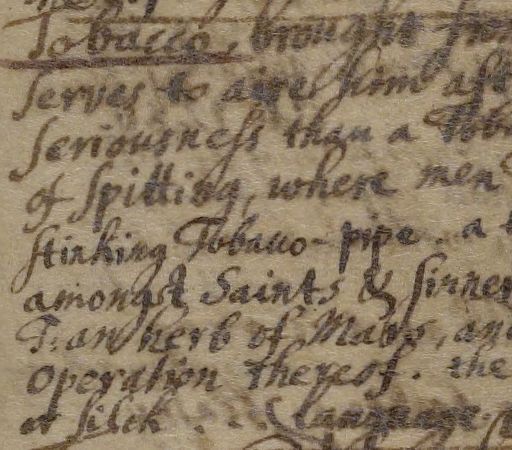 Tobacco, brought from
serves to aire him aft
seriousness than a Toba
of spitting, where men
stinking Tobacco-pipe. a
amongst Saints & sinners
T: an herb of Mars, and
operation thereof. the
or silck . . . Language